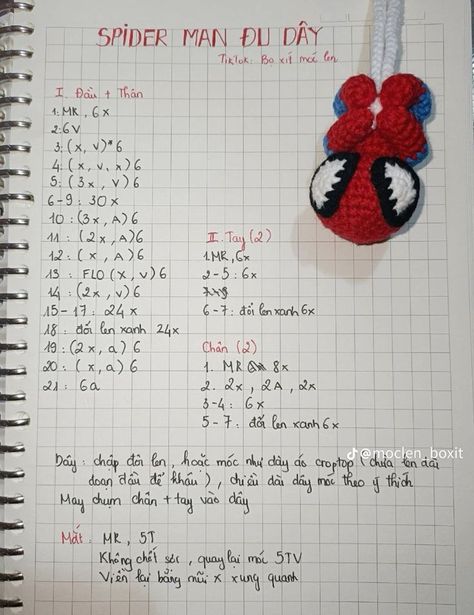 SPIDER MAN ĐU DÂY
TikTok: Bọ xít móc len
I. Đầu + Thân
1: MR, 6x
2: 6V
3: (x, v)*6
4: (x, v, x) 6
5: (3x, v) 6
6-9: 30x
10: (3x, A) 6
11: (2x, A) 6
12: (x, A) 6
13: FLO (x, v) 6
14: (2x, v) 6
15-17: 24x
18: đổi len xanh 24x
19: (2x, a) 6
20: (x, a) 6
21: 6a
II. Tay (2)
1. MR, 6x
2-5: 6x
6-7: đổi len xanh 6x
Chân (2)
1. MR 8x
2. 2x, 2A, 2x
3-4: 6x
5-7: đổi len xanh 6x
Dây: chập đôi len, hoặc móc như dây áo croptop (chừa len dài
đoạn đầu để khâu), chiều dài dây móc theo ý thích
May chụm chân + tay vào dây
Mắt: MR, 5T
Không chốt sos, quay lại móc 5TV
Viền lại bằng mũi x xung quanh
@moclen_boxit